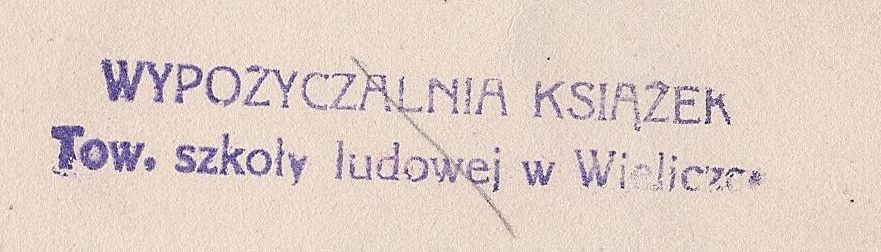 WYPOŻYCZALNIA KSIĄŻEK
Tow. szkoły ludowej w Wieliczce.